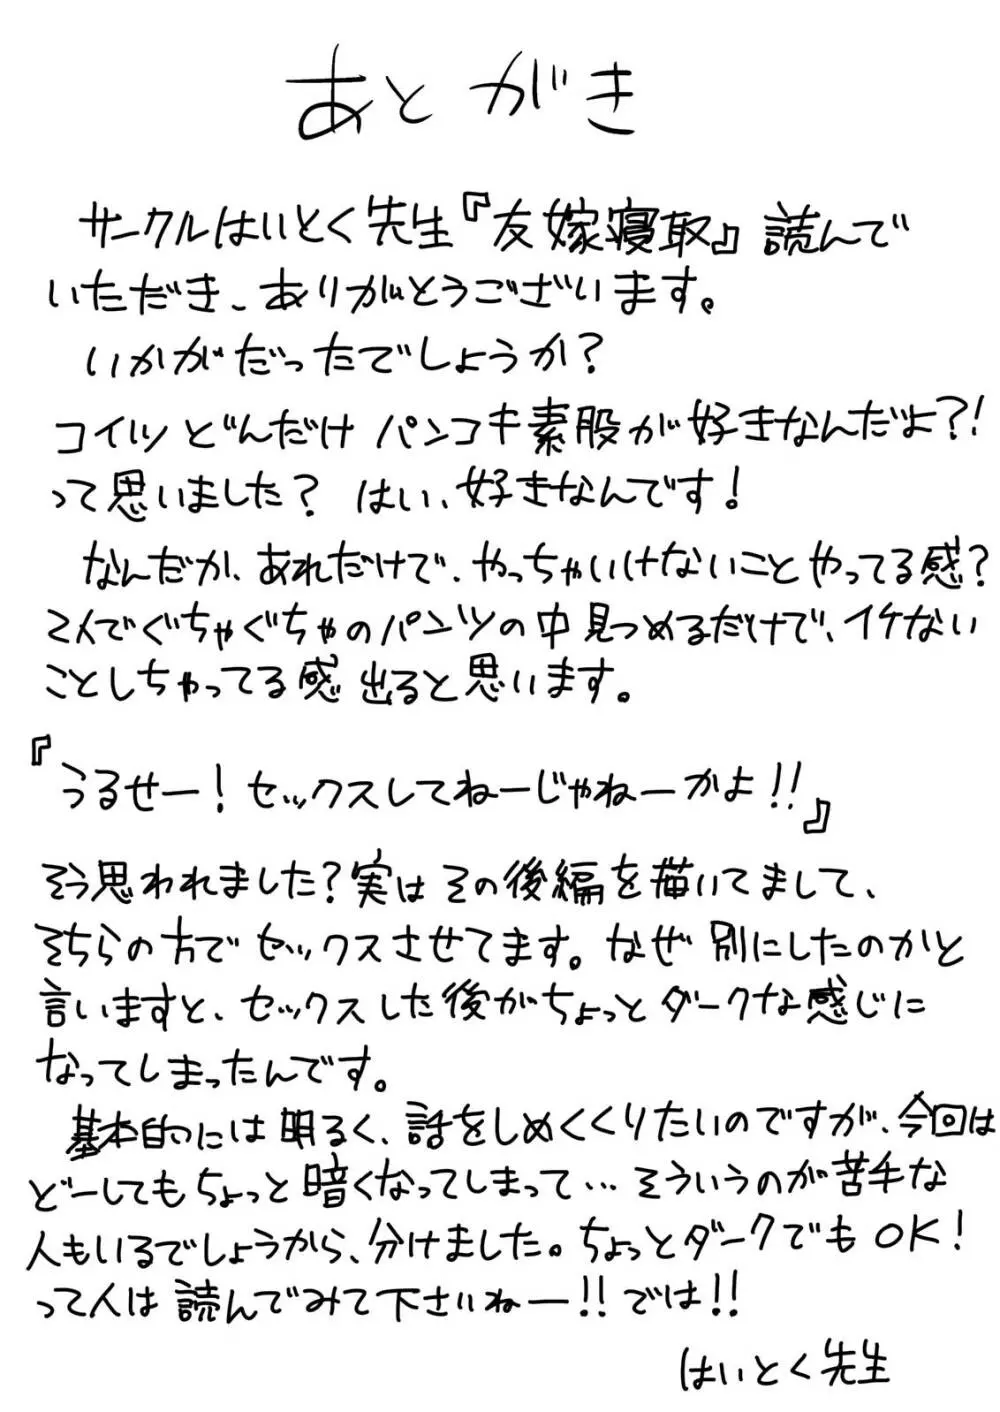 あとがき
サークルはいとく先生『友嫁寝取』読んで
いただき、ありがとうございます。
いかがだったでしょうか？
コイツどんだけパンコキ素股が好きなんだよ？！
って思いました？ はい、好きなんです！
なんだか、あれだけで、やっちゃいけないことやってる感？
2人でぐちゃぐちゃのパンツの中見つめるだけで、イケない
ことしちゃってる感出ると思います。
『うるせー！セックスしてねーじゃねーかよ！！』
そう思われました？実はその後編を描いてまして、
そちらの方でセックスさせてます。なぜ別にしたのかと
言いますと、セックスした後がちょっとダークな感じに
なってしまったんです。
基本的には明るく、話をしめくくりたいのですが、今回は
どーしてもちょっと暗くなってしまって…そういうのが苦手な
人もいるでしょうから、分けました。ちょっとダークでもOK！
って人は読んでみて下さいねー！！では！！
はいとく先生